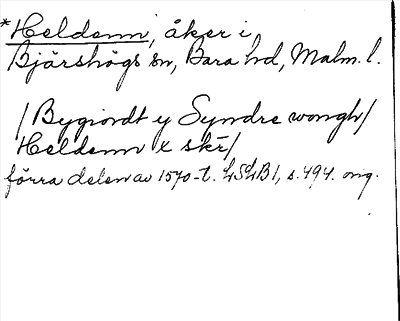 *Heldenn, åker i
Bjärshögs sn, Bara hd, Malm. l.
/Bygiordt y Syndre wongh/
Heldenn x skr/
förra delen av 1570-t. LSLB1, s. 494. orig.